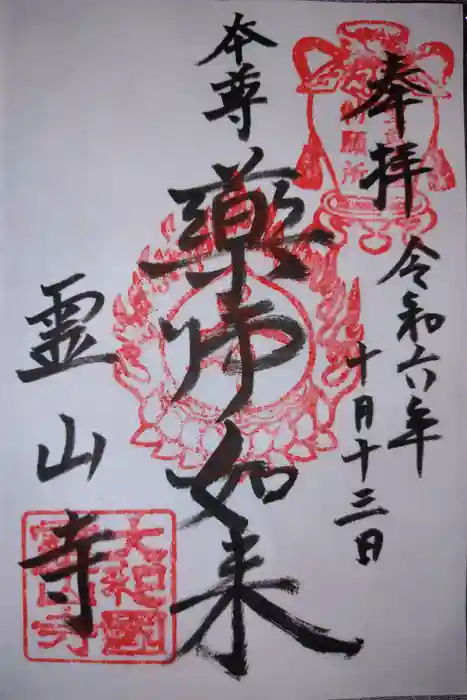 奉拝
令和六年
十月十三日
本尊
薬師如来
霊山寺
願所
大和國
霊山寺